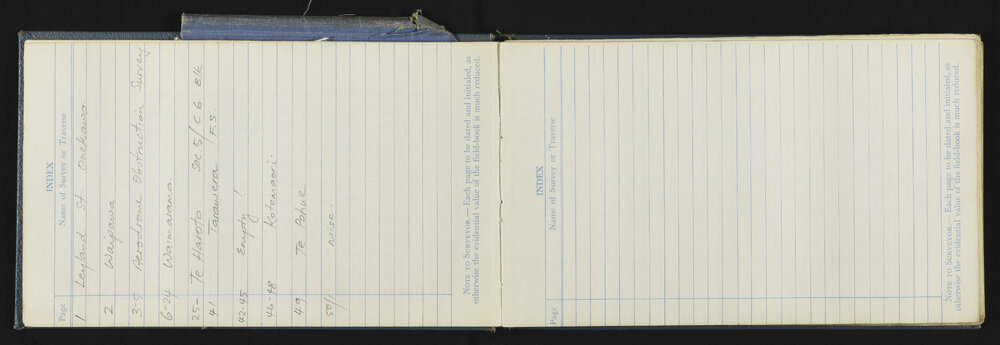 INDEX
Page Name of Survey or Traverse
1 Leyland St. Onekawa.
2 Waipawa
3-5 Aerodrome Obstruction Survey
6-24 Waimarama
25- Te Haroto Sec 5/ C 6 Blk
41 Tarawera /F.S.
42-45 Empty !
46-48 Kotemaori.
49 Te Pohue
50/1 Misc.
NOTE TO SURVEYOR.—Each page to be dated and initialed, as
otherwise the evidential value of the field-book is much reduced.
INDEX
Page Name of Survey or Traverse
NOTE TO SURVEYOR.—Each page to be dated and initialed, as
otherwise the evidential value of the field-book is much reduced.